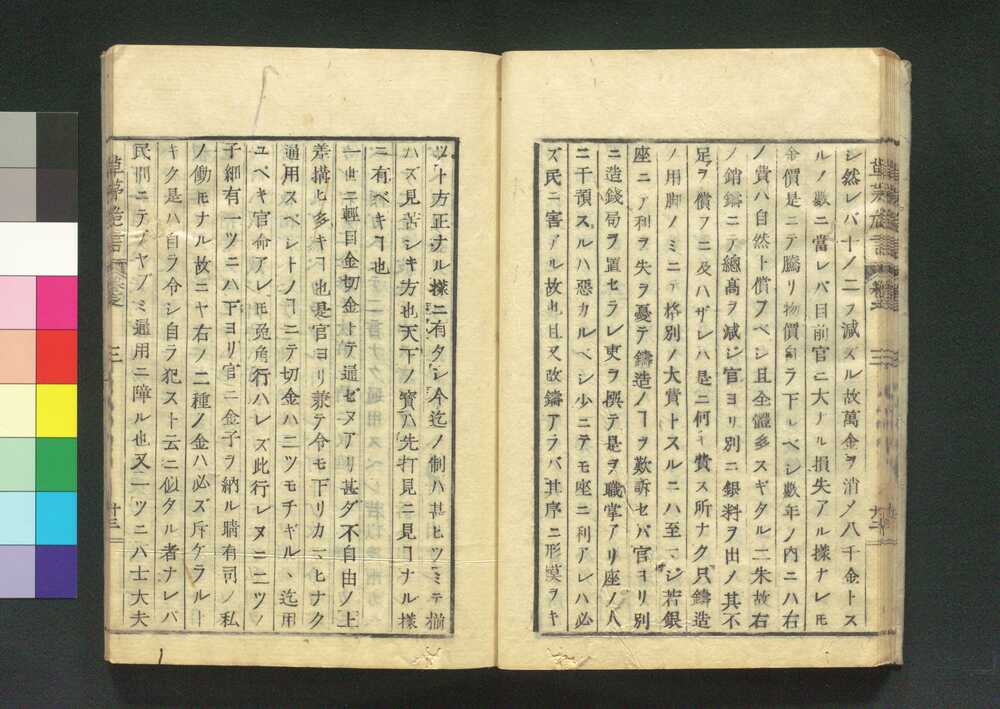 シ然レバ十ノ二ヲ減ズル故萬金ヲ消メ八千金トス
ルノ數ニ當レバ目前官ニ大ナル損失アル樣ナレ𪜈
金價是ニテ騰リ物價自ラ下ルベシ數年ノ内ニハ右
ノ費ハ自然ト償フベシ且全體多スギタル二朱故右
ノ銷鑄ニテ總高ヲ減ジ官ヨリ別ニ銀料ヲ出ノ其不
足ヲ償フニ及ハザレハ是ニ何ノ費ス所ナク只鑄造
ノ用脚ノミニテ格別ノ大費トスルニハ至マジ若銀
座ニテ利ヲ失ヲ憂テ鑄造ノヿヲ歎訴セバ官ヨリ別
ニ造錢局ヲ置セラレ吏ヲ撰テ是ヲ職掌アリ座ノ人
ニ干預スルハ惡カルベシ少ニテモ座ニ利アレハ必
ズ民ニ害アル故也且又改鑄アラバ其序ニ形摸ヲキ
ツト方正ナル樣ニ有タシ今迄ノ制ハ甚ヒツミテ揃
ハズ見苦シキ方也天下ノ寶ハ先打見ニ見ヿナル樣
ニ有ベキヿ也
一世ニ輕目金切金トテ通ゼヌアリ甚ダ不自由ノ上
差搆ヒ多キヿ也是官ヨリ兼テ令モ下リカマヒナク
通用スベシトノヿニテ切金ハ二ツモチギルヽ迄用
ユベキ官命アレ𪜈兎角行ハレズ此行レヌニ二ツノ
子細有一ツニハ下ヨリ官ニ金子ヲ納ル時有司ノ私
ノ働𪜈ナル故ニヤ右ノ二種ノ金ハ必ズ斥ケラルト
キク是ハ自ラ令シ自ラ犯スト云ニ似タル者ナレバ
民間ニテアヤブミ通用ニ障ル也又一ツニハ士大夫
草茅危言
三
十三